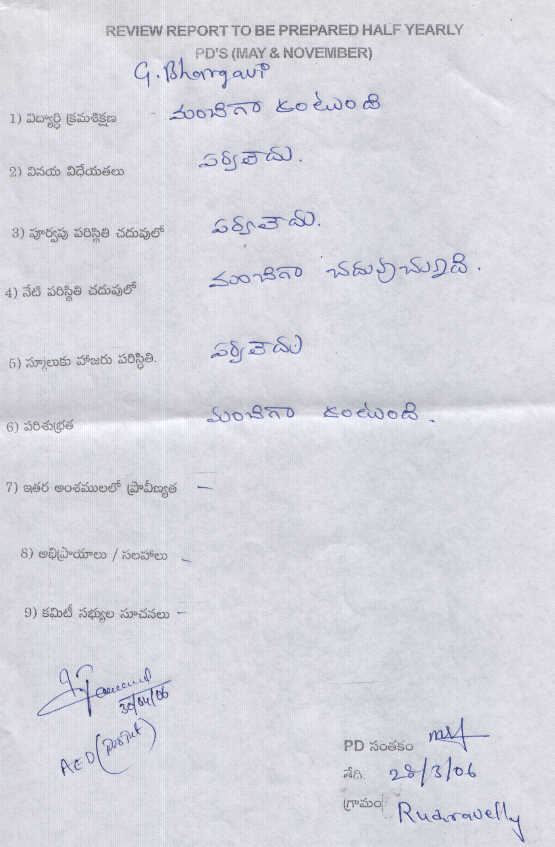 REVIEW REPORT TO BE PREPARED HALF YEARLY
PD'S (MAY & NOVEMBER)
G. Bhargavi
1) విద్యార్థి క్రమశిక్షణ మంచిగా ఉంటుంది
2) వినయ విధేయతలు పర్వలేదు.
3) పూర్వపు పరిస్థితి చదువులో పర్వలేదు.
4) నేటి పరిస్థితి చదువులో మంచిగా చదువుచున్నది.
5) స్కూలుకు హాజరు పరిస్థితి. పర్వలేదు
6) పరిశుభ్రత మంచిగా ఉంటుంది.
7) ఇతర అంశములలో ప్రావీణ్యత –
8) అభిప్రాయాలు / సలహాలు –
9) కమిటీ సభ్యుల సూచనలు –
30/04/06
AED
PD సంతకం
తేది. 28/3/06
గ్రామం Rudravelly